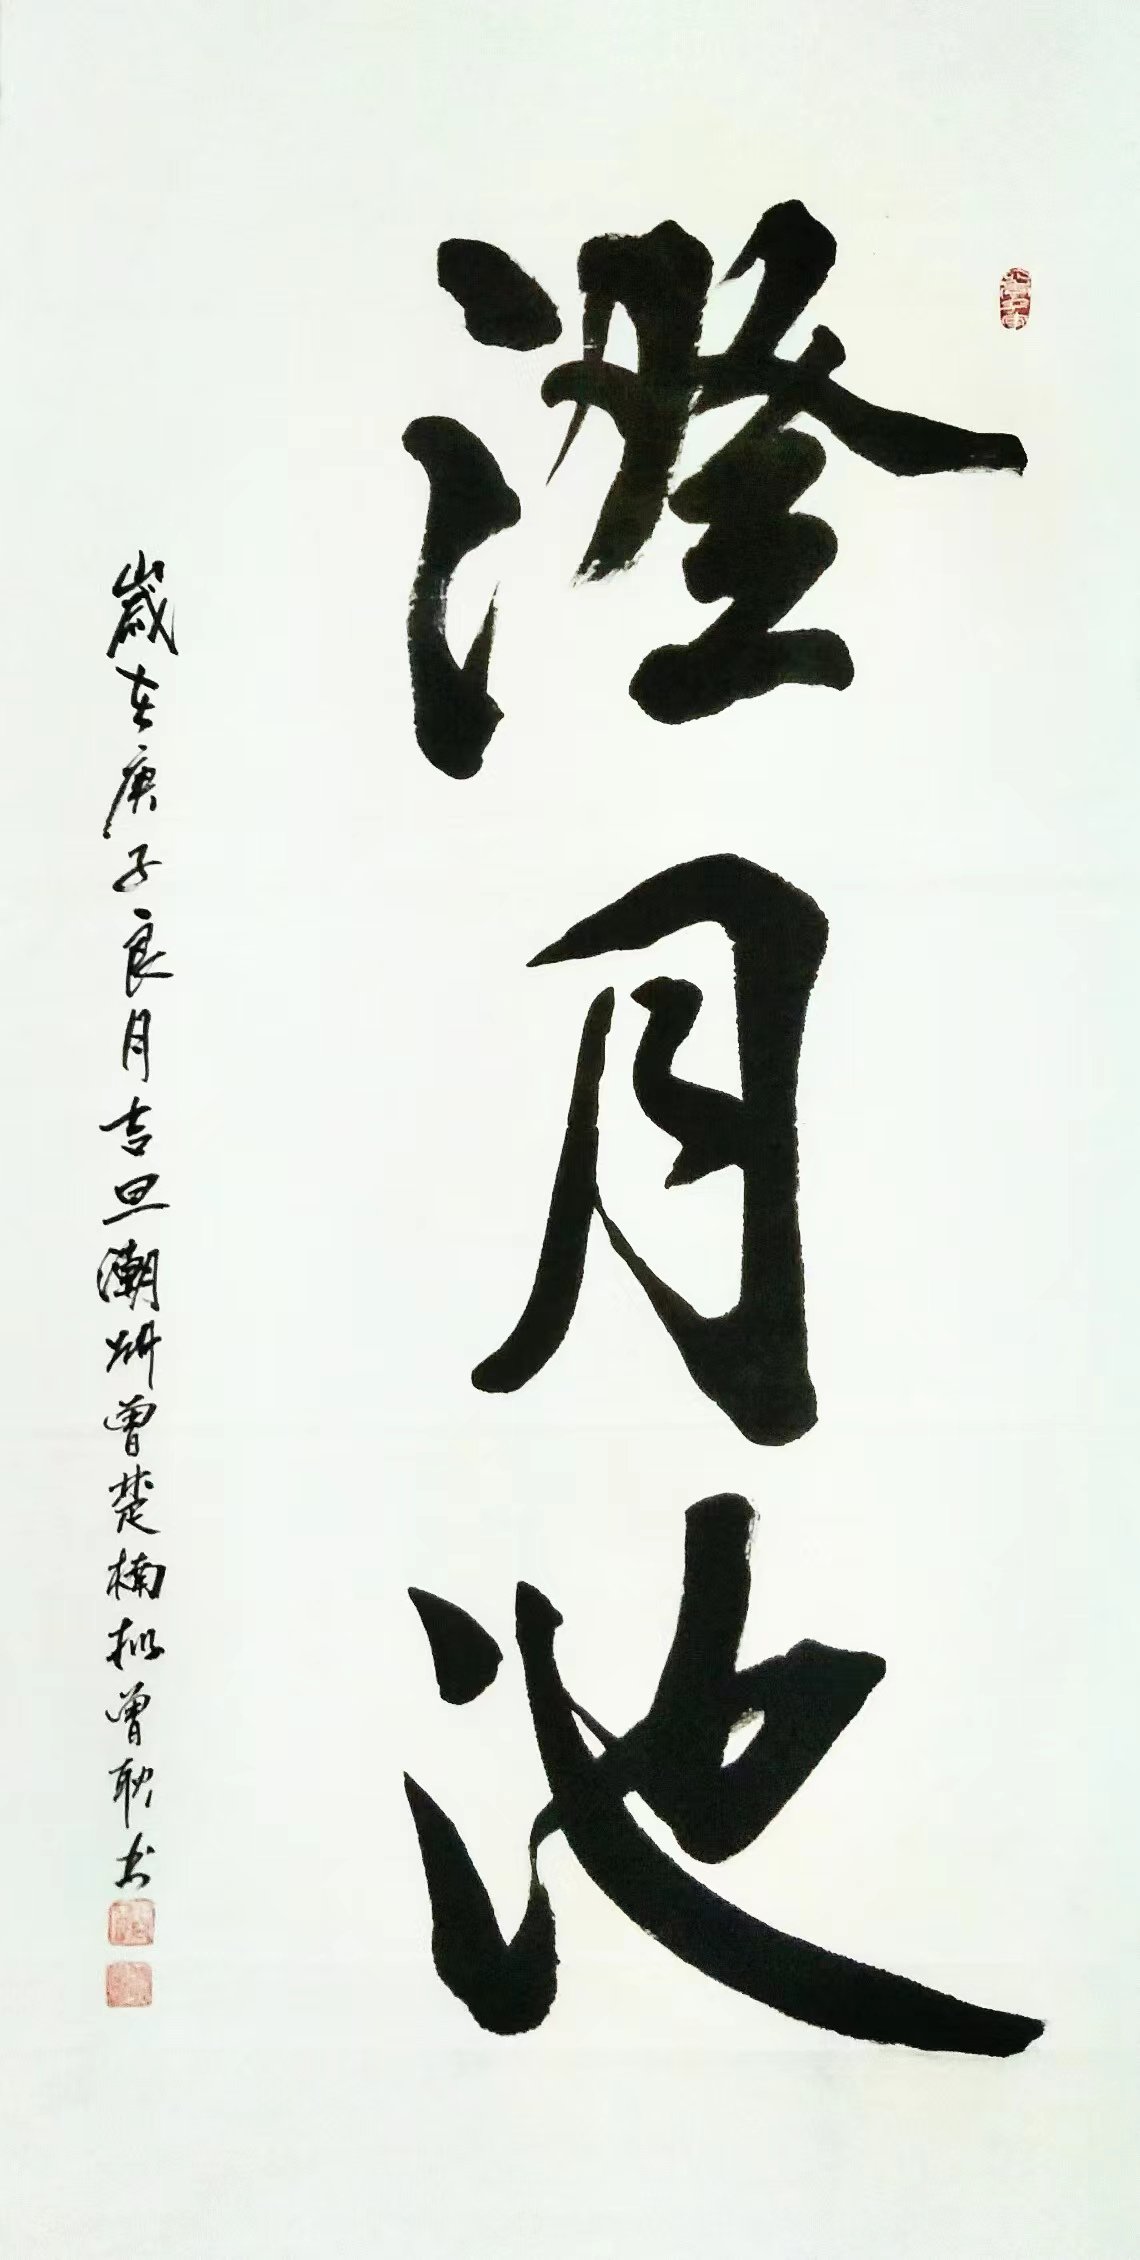 澄月池
歲在庚子良月吉旦潮州曾楚楠撰曾耿书